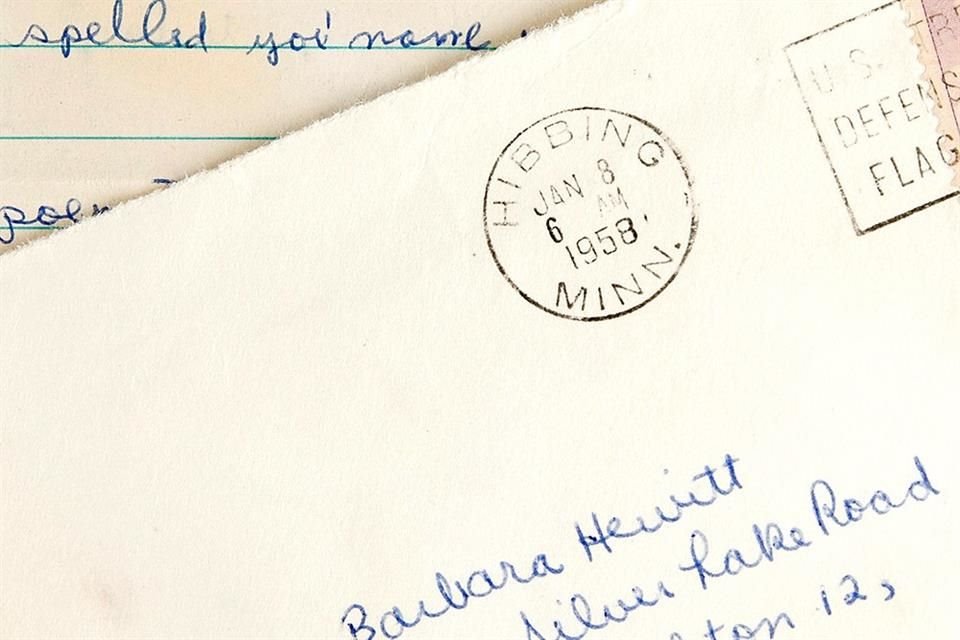 spelled you' name.
HIBBING
JAN 8
6 AM
1958
MINN.
U.S.
DEFENS
FLAG
Barbara Hewitt
Silver Lake Road
12,